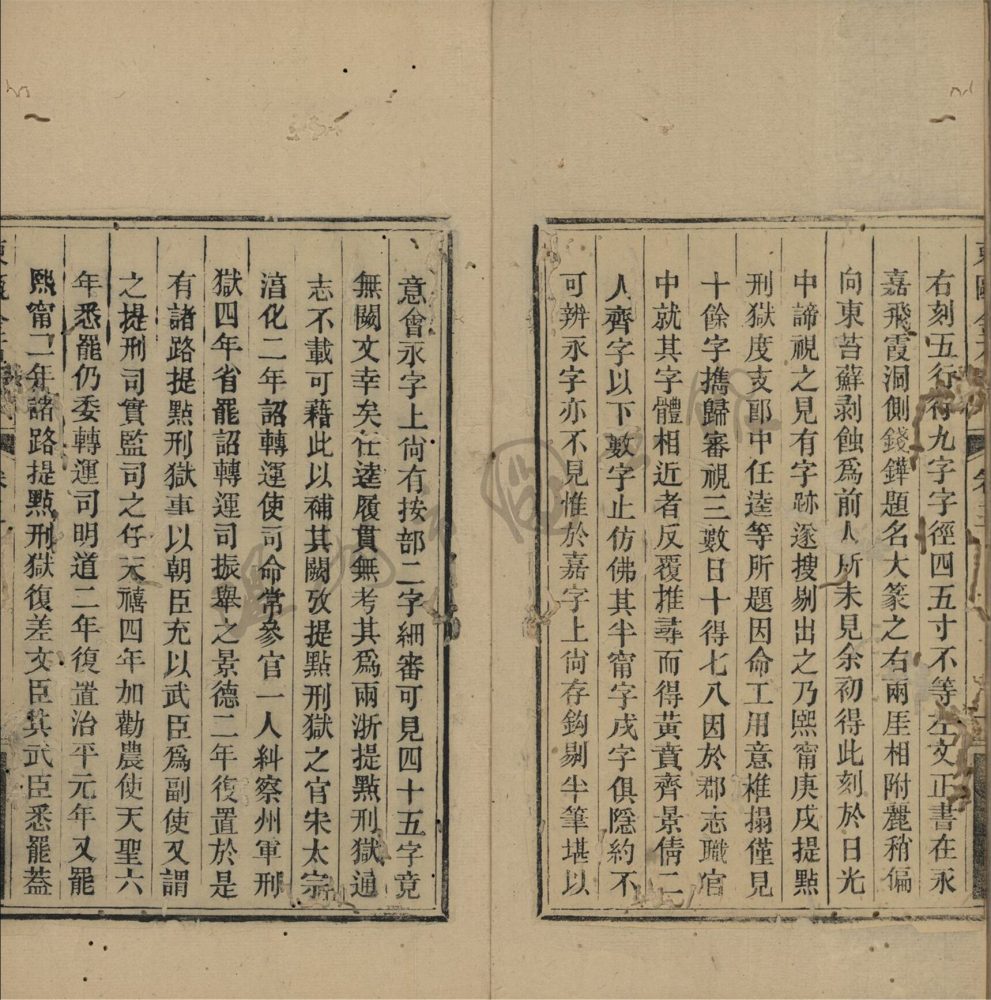 右刻五行行九字字徑四五寸不等左文正書在永
嘉飛霞洞側錢鏵題名大篆之右兩厓相附麗稍偏
向東苔蘚剥蝕爲前人所未見余初得此刻於日光
中諦視之見有字跡遂搜剔出之乃熙甯庚戌提點
刑獄度支郎中任逵等所題因命工用意椎搨僅見
十餘字擕歸審視三數日十得七八因於郡志職官
中就其字體相近者反覆推尋而得黃賁齊景倩二
人齊字以下數字止仿佛其半甯字戌字俱隱約不
可辨永字亦不見惟於嘉字上尙存鈎剔半筆堪以
意會永字上尙有按部二字細審可見四十五字竟
無闕文幸矣任逵履貫無考其爲兩浙提點刑獄通
志不載可藉此以補其闕攷提點刑獄之官宋太宗
淯化二年詔轉運使可命常參官一人糾察州軍刑
獄四年省罷詔轉運司振舉之景德二年復置於是
有諸路提點刑獄事以朝臣充以武臣爲副使又謂
之提刑司實監司之任天禧四年加勸農使天聖六
年悉罷仍委轉運司明道二年復置治平元年又罷
熙甯二年諸路提點刑獄復差文臣其武臣悉罷蓋